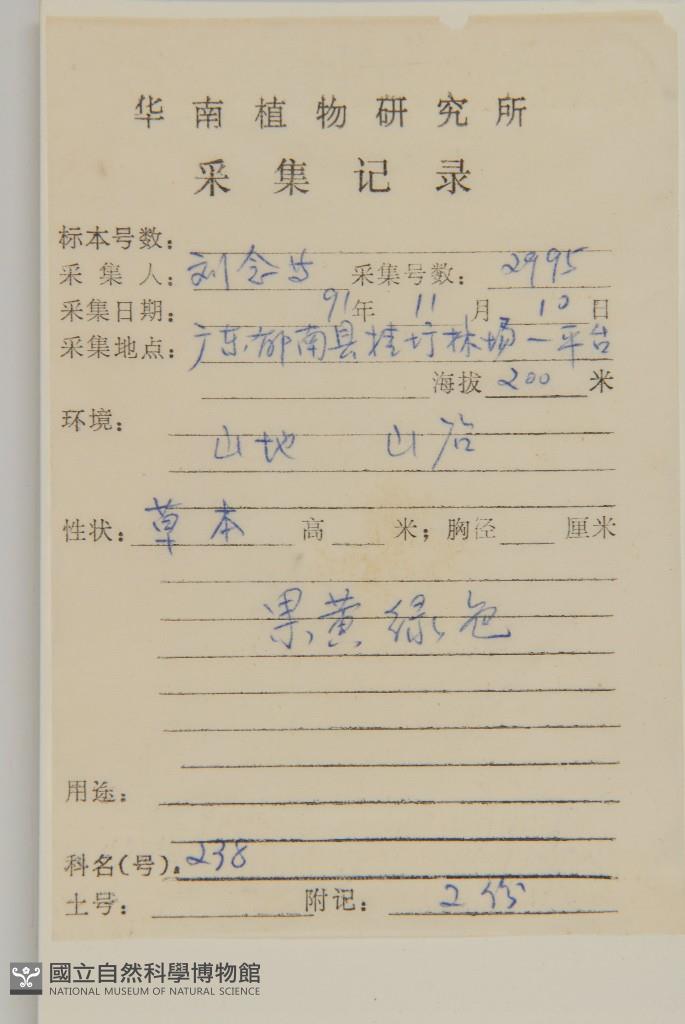 华南植物研究所
采集记录
标本号数：
采集人：刘念 采集号数：2995
采集日期：91年11月10日
采集地点：广东郁南县桂圩林场一平台
海拔200米
环境：
山地 山谷
性状：草本 高 米；胸径 厘米
果黄绿色
用途：
科名(号)：238
土号： 附记：2份
國立自然科學博物館
NATIONAL MUSEUM OF NATURAL SCIENCE